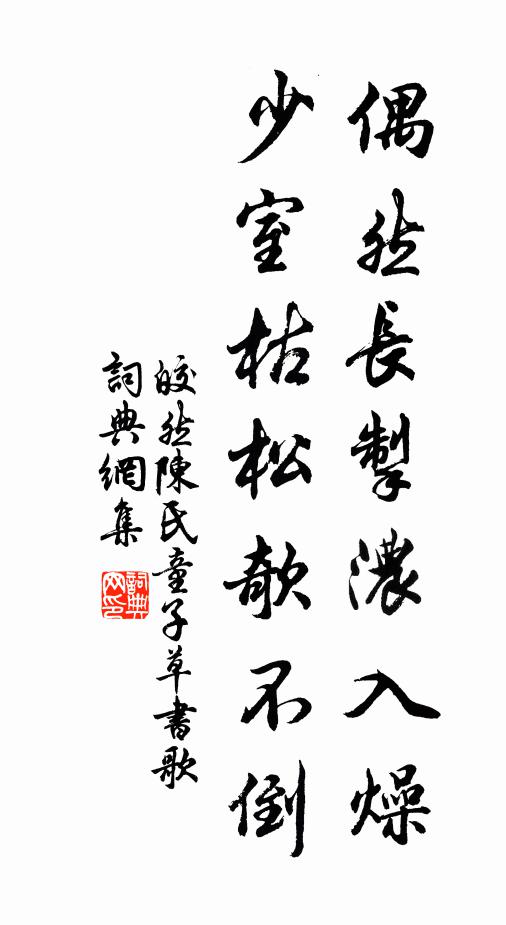 偶然長掣濃入燥
少室枯松欹不倒
皎然陳氏童子草書歌
詞典網集
詞典网印